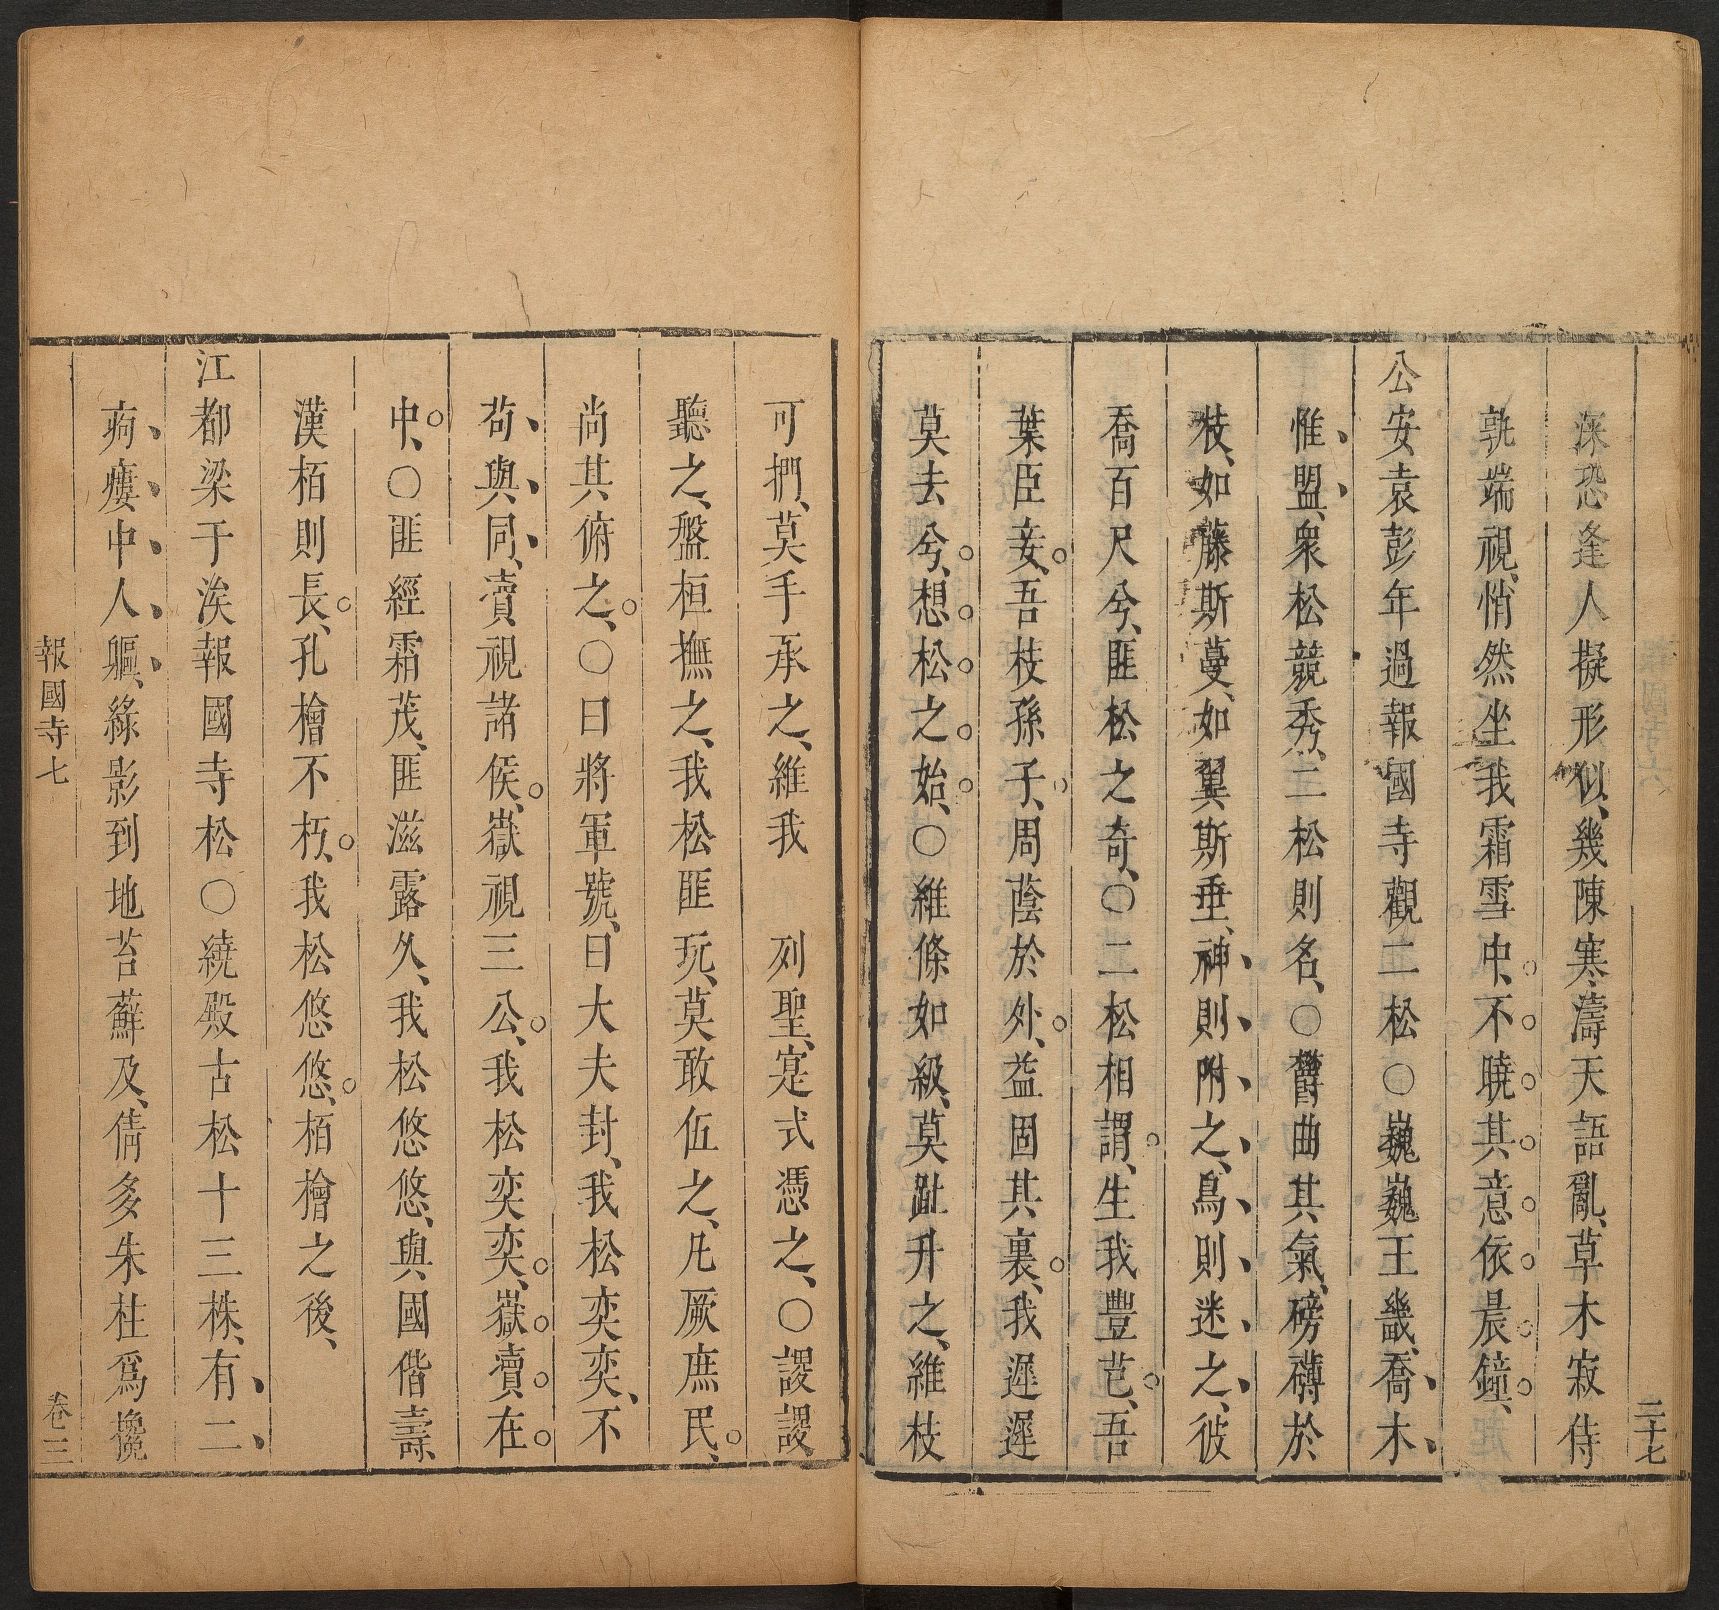 二十七
深恐逢人擬形似、幾陳寒濤天語亂、草木寂侍
孰端視、悄然坐我霜雪中、不曉其意依晨鐘、
公安袁彭年過報國寺觀二松○巍巍王畿、喬木
惟盟、衆松競秀、二松則名、○鬱曲其氣、磅礴於
枝、如藤斯蔓、如翼斯垂、神則附之、鳥則迷之、彼
喬百尺兮、匪松之奇、○二松相謂、生我豐芑、吾
葉臣妾、吾枝孫子、周蔭於外、益固其裏、我遲遲
莫去兮、想松之始、○維條如級、莫趾升之、維枝
可捫、莫手承之、維我　列聖、寔式憑之、○謖謖
聽之、盤桓撫之、我松匪玩、莫敢伍之、凡厥庶民、
尚其俯之、○曰將軍號、曰大夫封、我松奕奕、不
苟與同、瀆視諸侯、嶽視三公、我松奕奕、嶽瀆在
中、○匪經霜茂、匪滋露久、我松悠悠、與國偕壽、
漢栢則長、孔檜不朽、我松悠悠、栢檜之後、
江都梁于涘報國寺松○繞殿古松十三株、有二
痀瘻中人軀、綠影到地苔蘚及、倩多朱柱爲攙
報國寺七
卷三